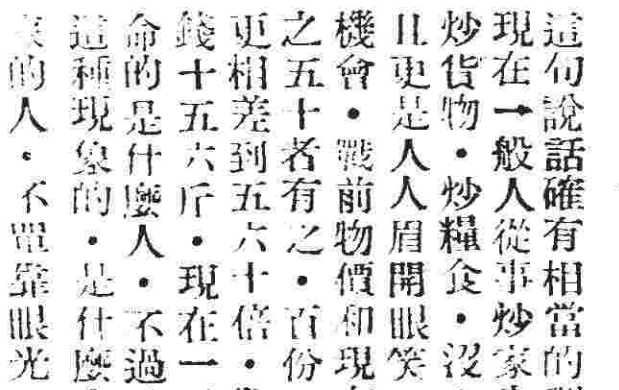 這句說話確有相當的
現在一般人從事炒家
炒貨物・炒糧食・沒
且更是人人眉開眼笑
機會・戰前物價和現
之五十者有之・百份
更相差到五六十倍・
錢十五六斤・現在一
命的是什麼人・不過
這種現象的・是什麼
的人・不單靠眼光